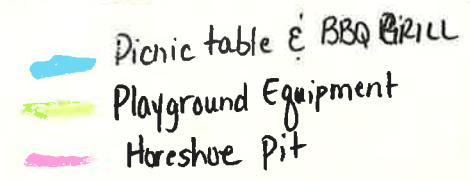 Picnic table & BBQ GRILL
Playground Equipment
Horeshoe Pit